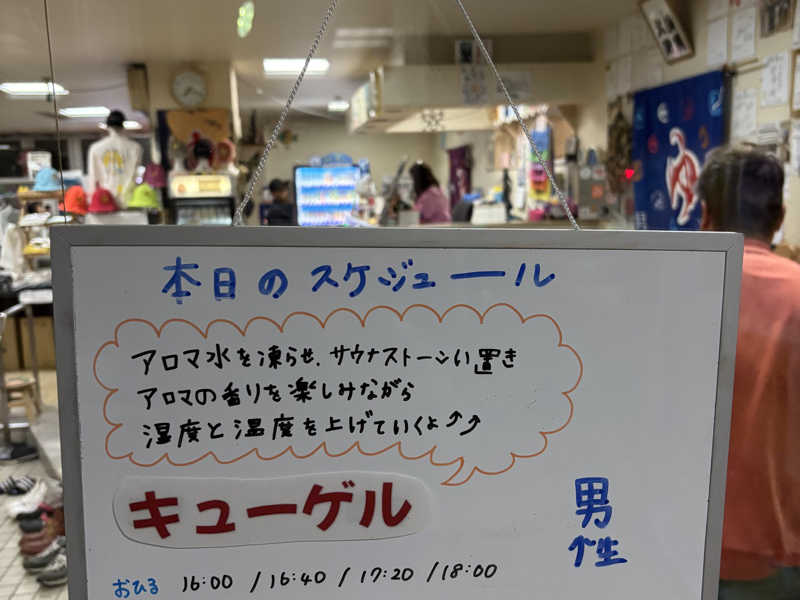 本日のスケジュール
アロマ水を凍らせ、サウナストーンに置き
アロマの香りを楽しみながら
湿度と温度を上げていくよ↑↑
キューゲル
男性
おひる 16:00 / 16:40 / 17:20 / 18:00